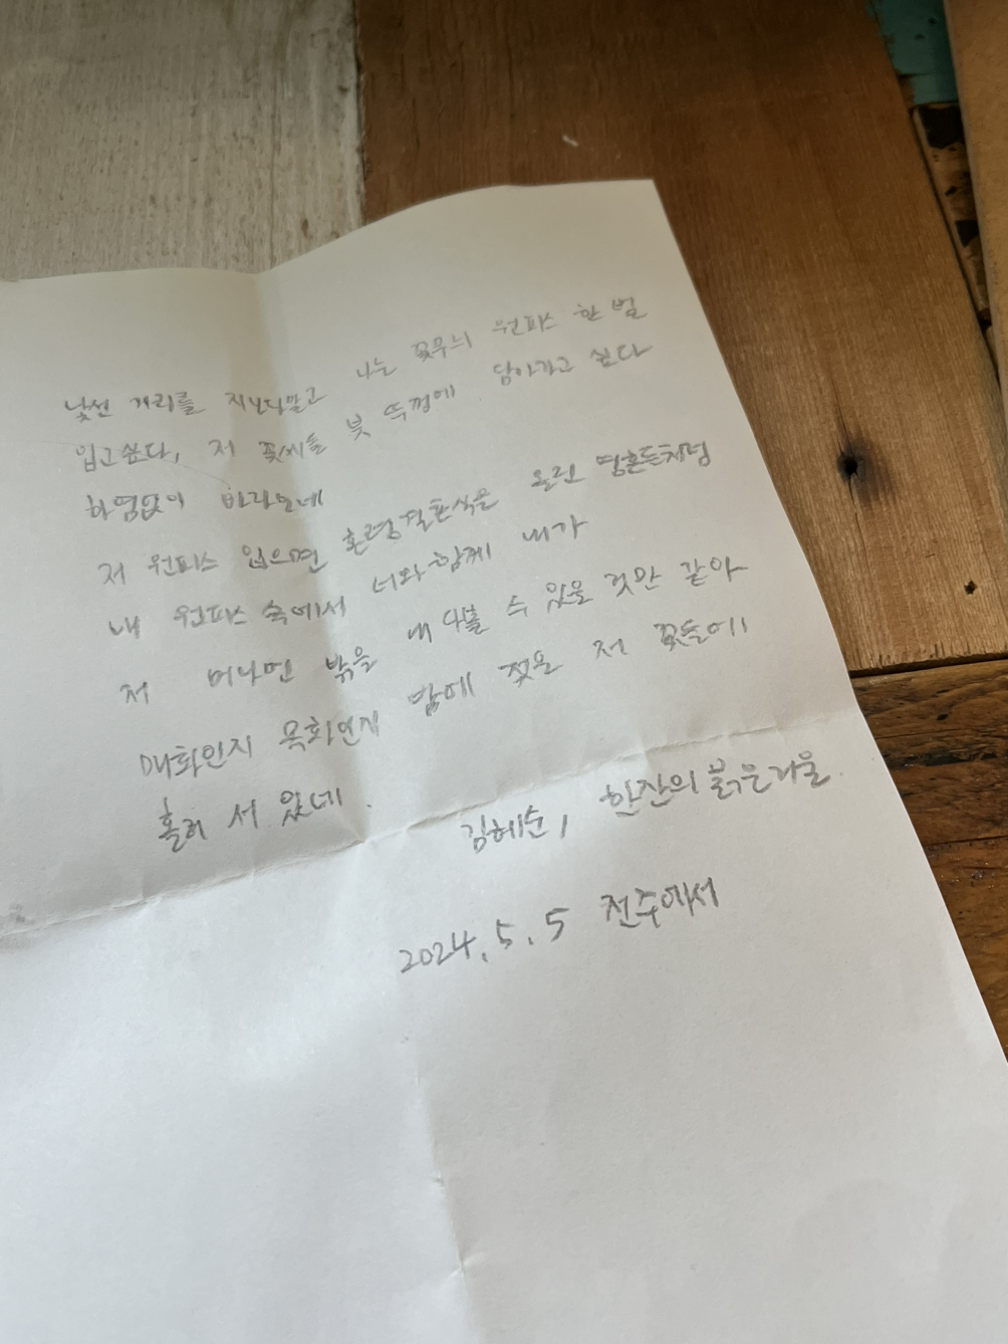 낯선 거리를 지나다말고 나는 꽃무늬 원피스 한 벌
입고싶다, 저 꽃씨를 붓 뚜껑에 담아가고 싶다
하염없이 바라보네
저 원피스 입으면 혼령결혼식을 올린 영혼들처럼
내 원피스 속에서 너와 함께 내가
저 머나먼 밖을 내다볼 수 있을 것만 같아
매화인지 목화인지 밤에 젖은 저 꽃들에
홀려 서 있네.
김혜순, 한잔의 붉은 거울.
2024. 5. 5 전주에서